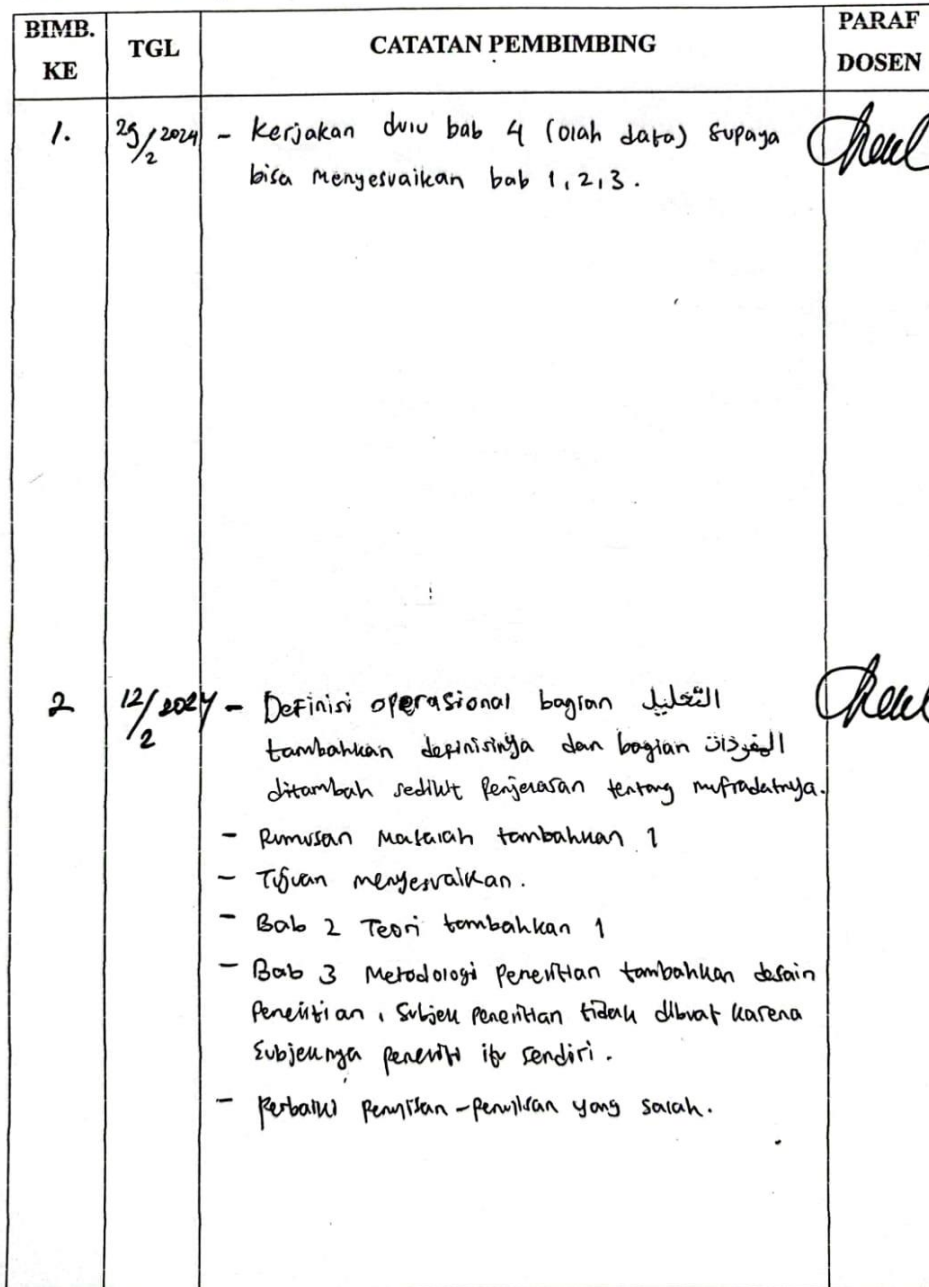 BIMB. KE
TGL
CATATAN PEMBIMBING
PARAF DOSEN
1.
25/2 2024
- Kerjakan dulu bab 4 (olah data) supaya
bisa menyesuaikan bab 1, 2, 3.
2
12/2 2024
- Definisi operasional bagian التحليل
tambahkan definisinya dan bagian المفردات
ditambah sedikit penjelasan tentang mufradatnya.
- Rumusan Masalah tambahkan 1
- Tujuan menyesuaikan.
- Bab 2 Teori tambahkan 1
- Bab 3 Metodologi penelitian tambahkan desain
penelitian, Subjek penelitian tidak dibuat karena
Subjeknya peneliti itu sendiri.
- Perbaiki penulisan-penulisan yang salah.